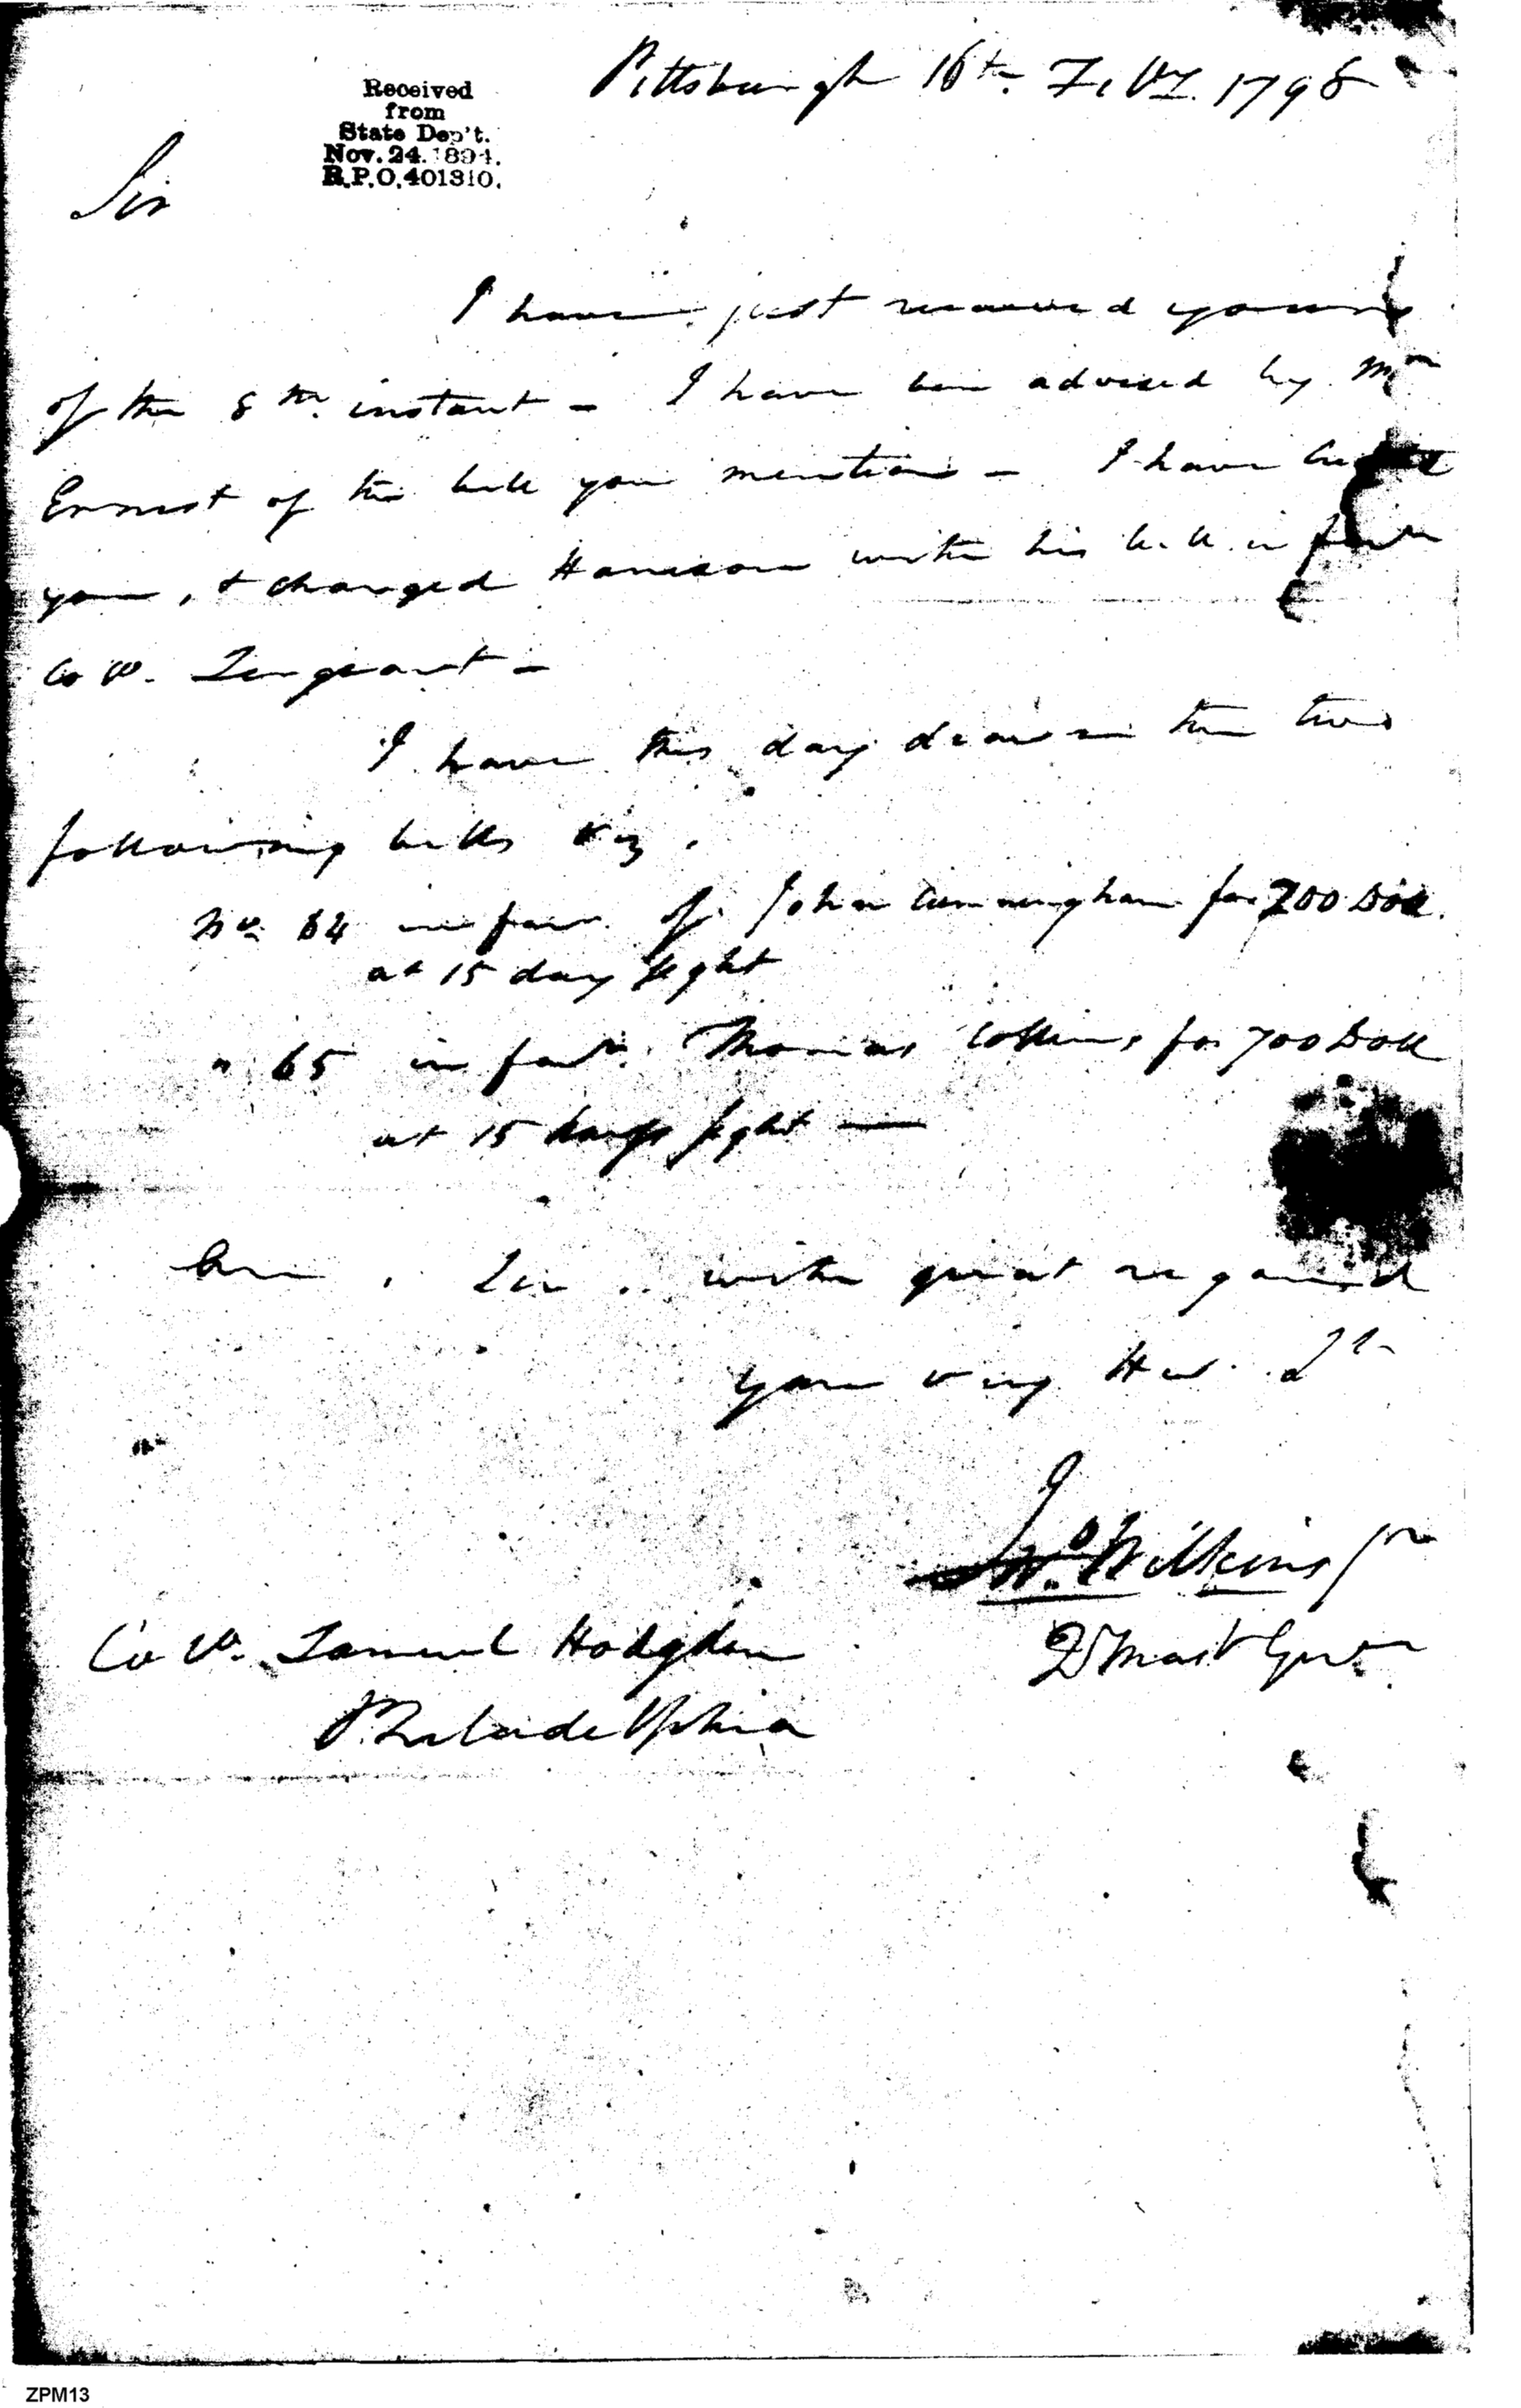 Pittsburgh 16th. Feby. 1798
Received
from
State Dep't.
Nov. 24. 1894.
R.P.O. 401310.
Sir
I have just received yours
of the 8th. instant - I have been advised by Mr
Ernest of the bill you mention - I have
you, & charged Harrison with his bill in favr
Colo. Sergeant -
I have this day drawn the two
following bills viz.
No. 64 in favr. of John Cunningham for 200 Doll.
at 15 day sight
" 65 in favr. Thomas Collins for 700 Doll
at 15 days sight —
Am, Sir, with great regard
your very Hue. St
Jno. Wilkins Jnr
QrMastr Genr
Colo. Samuel Hodgdon
Philadelphia
ZPM13